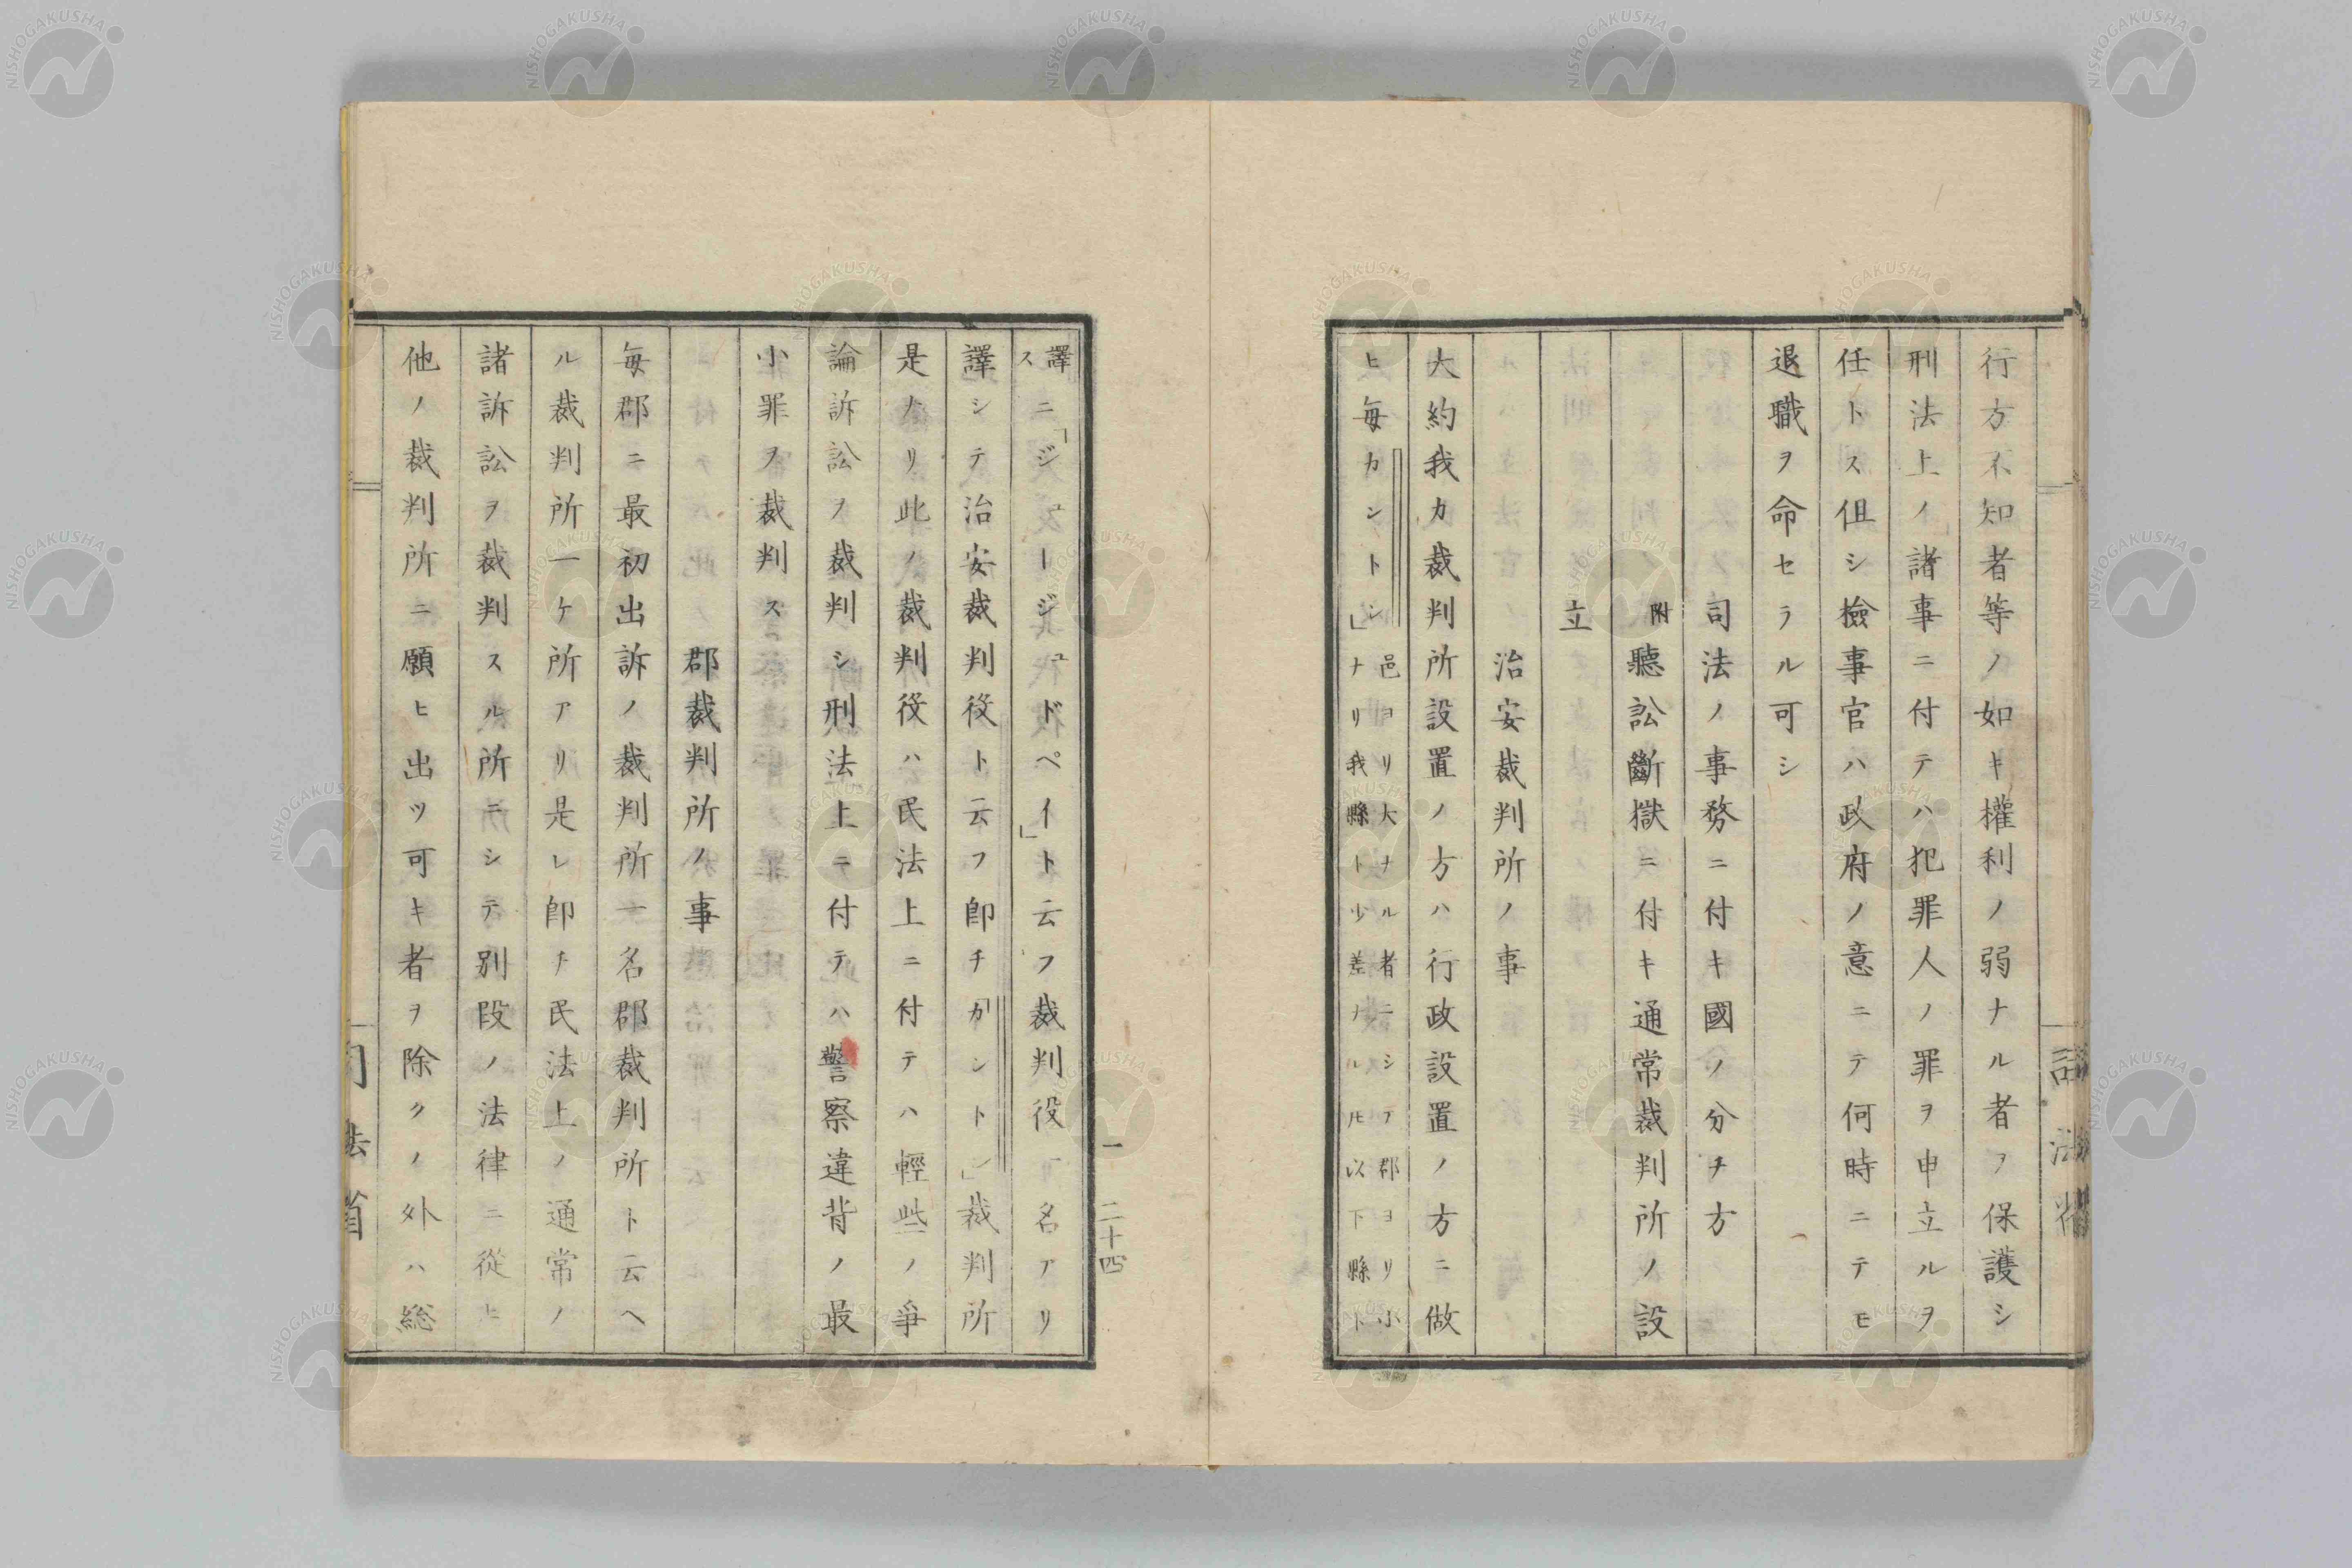 行方不知者等ノ如キ權利ノ弱ナル者ヲ保護シ
刑法上ノ諸事ニ付テハ犯罪人ノ罪ヲ申立ルヲ
任トス但シ檢事官ハ政府ノ意ニテ何時ニテモ
退職ヲ命セラル可シ
司法ノ事務ニ付キ國ノ分チ方
附聽訟斷獄ニ付キ通常裁判所ノ設
立
治安裁判所ノ事
大約我カ裁判所設置ノ方ハ行政設置ノ方ニ倣
ヒ毎カントン」
邑ヨリ大ナル者ニシテ郡ヨリ小
ナリ我縣ト少差ナルヒ以下縣ト
譯ス
ニ「ジュージュドペイ」ト云フ裁判役一名アリ
譯シテ治安裁判役ト云フ即チ「カントン」裁判所
是ナリ此ノ裁判役ハ民法上ニ付テハ輕些ノ爭
論訴訟ヲ裁判シ刑法上ニ付テハ警察違背ノ最
小罪ヲ裁判ス
郡裁判所ノ事
毎郡ニ最初出訴ノ裁判所一名郡裁判所ト云ヘ
ル裁判所一ケ所アリ是レ即チ民法上ノ通常ノ
諸訴訟ヲ裁判スル所ニシテ別段ノ法律ニ從ヒ
他ノ裁判所ニ願ヒ出ツ可キ者ヲ除クノ外ハ総
一 二十四
法省